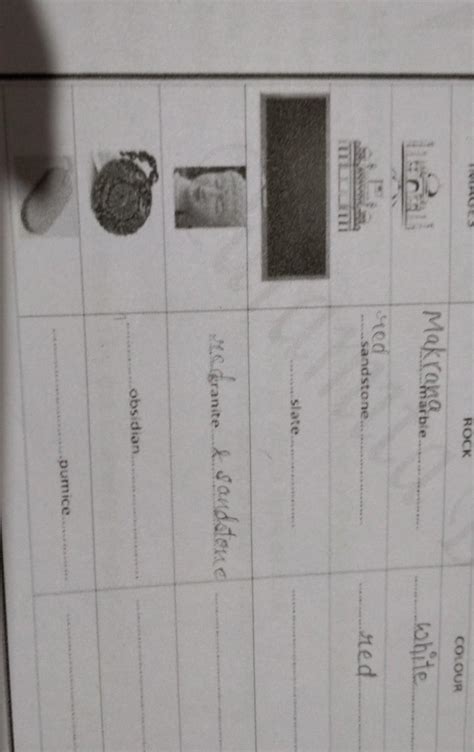 IMAGES ROCK COLOUR
Makrana
.....marble............... ......white
red
.....sandstone............... ......red
.........slate............... ...............
red granite.....& sandstone ...............
...............obsidian............... ...............
...............pumice......... ...............